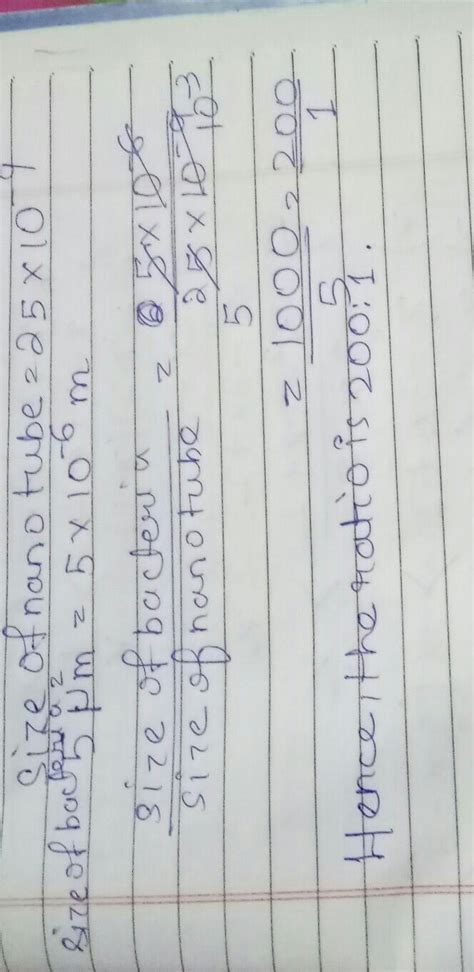 Size of nano tube = 25 × 10⁻⁹
size of bacteria =
5 μm = 5 × 10⁻⁶ m
size of bacteria / size of nanotube = 5 × 10⁻⁶ / 25 × 10⁻⁹ 10⁻³
5
= 1000 / 5 = 200 / 1
Hence, the ratio is 200:1.